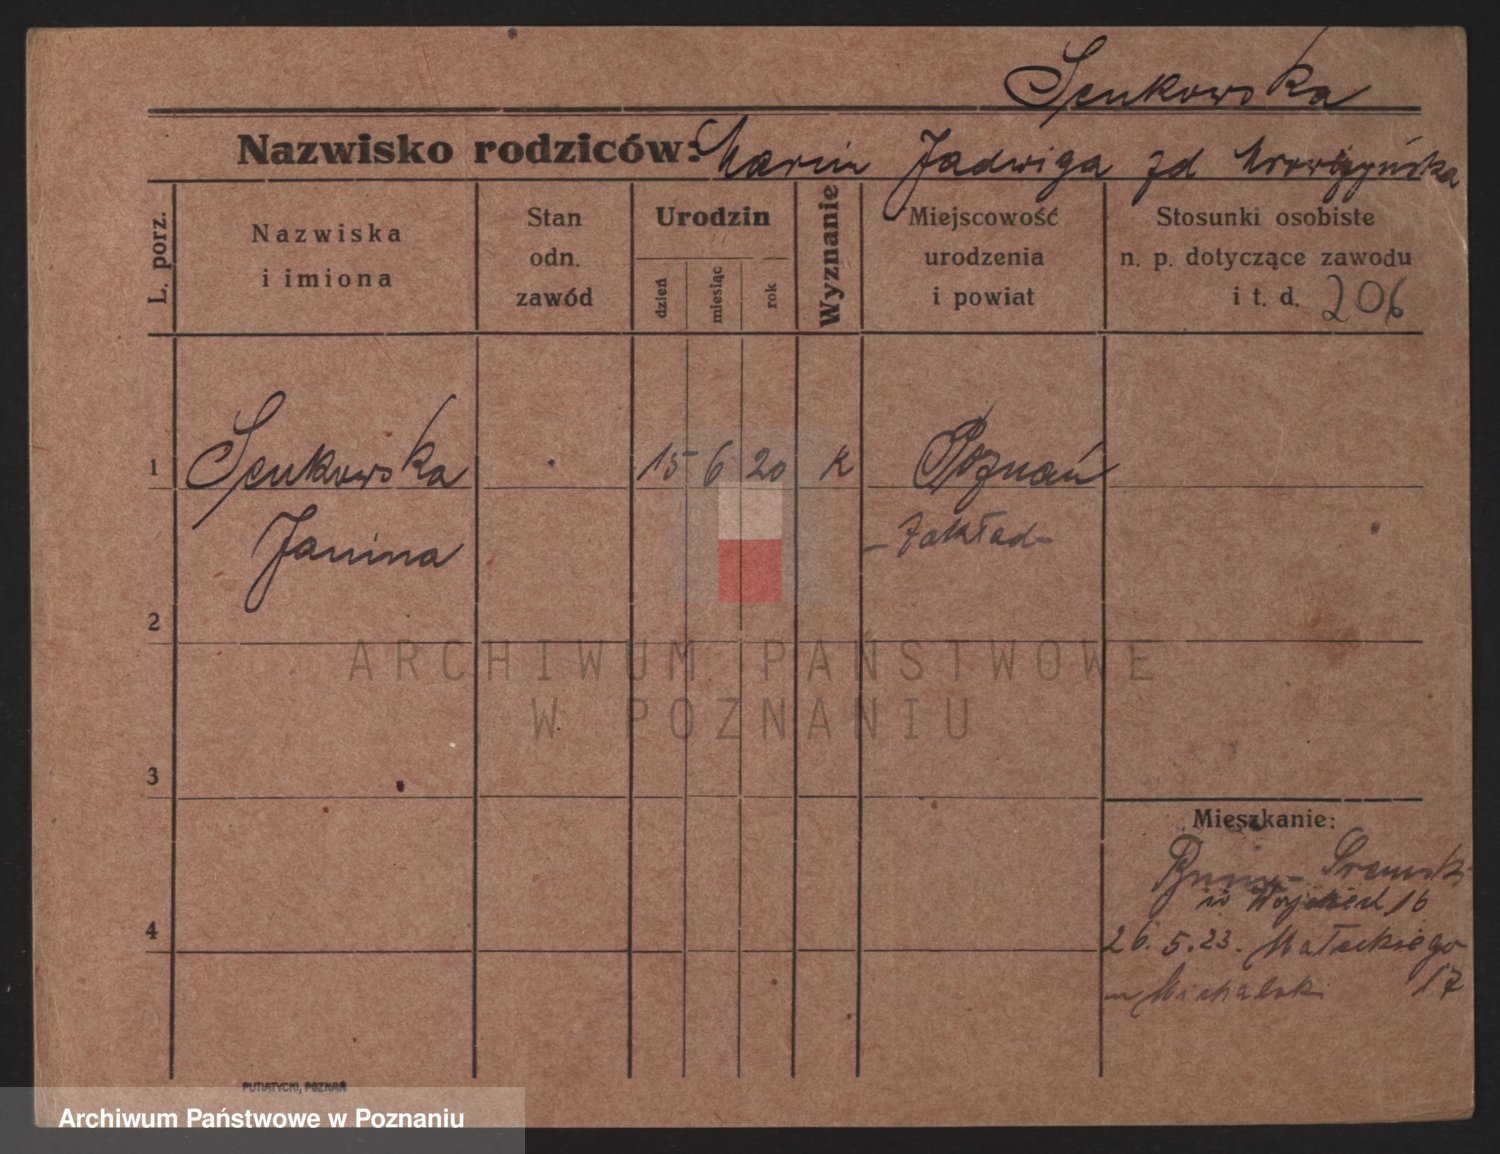 Senkowska
Nazwisko rodziców: Marcin Jadwiga zd
L. porz.
Nazwiska
i imiona
Stan
odn.
zawód
Urodzin
dzień
miesiąc
rok
Wyznanie
Miejscowość
urodzenia
i powiat
Stosunki osobiste
n. p. dotyczące zawodu
i t. d. 206
1 Senkowska 15 6 20 k Poznań
Janina - Zakład -
2
3
4
ARCHIWUM PAŃSTWOWE
W POZNANIU
Mieszkanie:
16
26. 5. 23. Małeckiego
Michalski 17
PUTIATYCKI, POZNAŃ
Archiwum Państwowe w Poznaniu